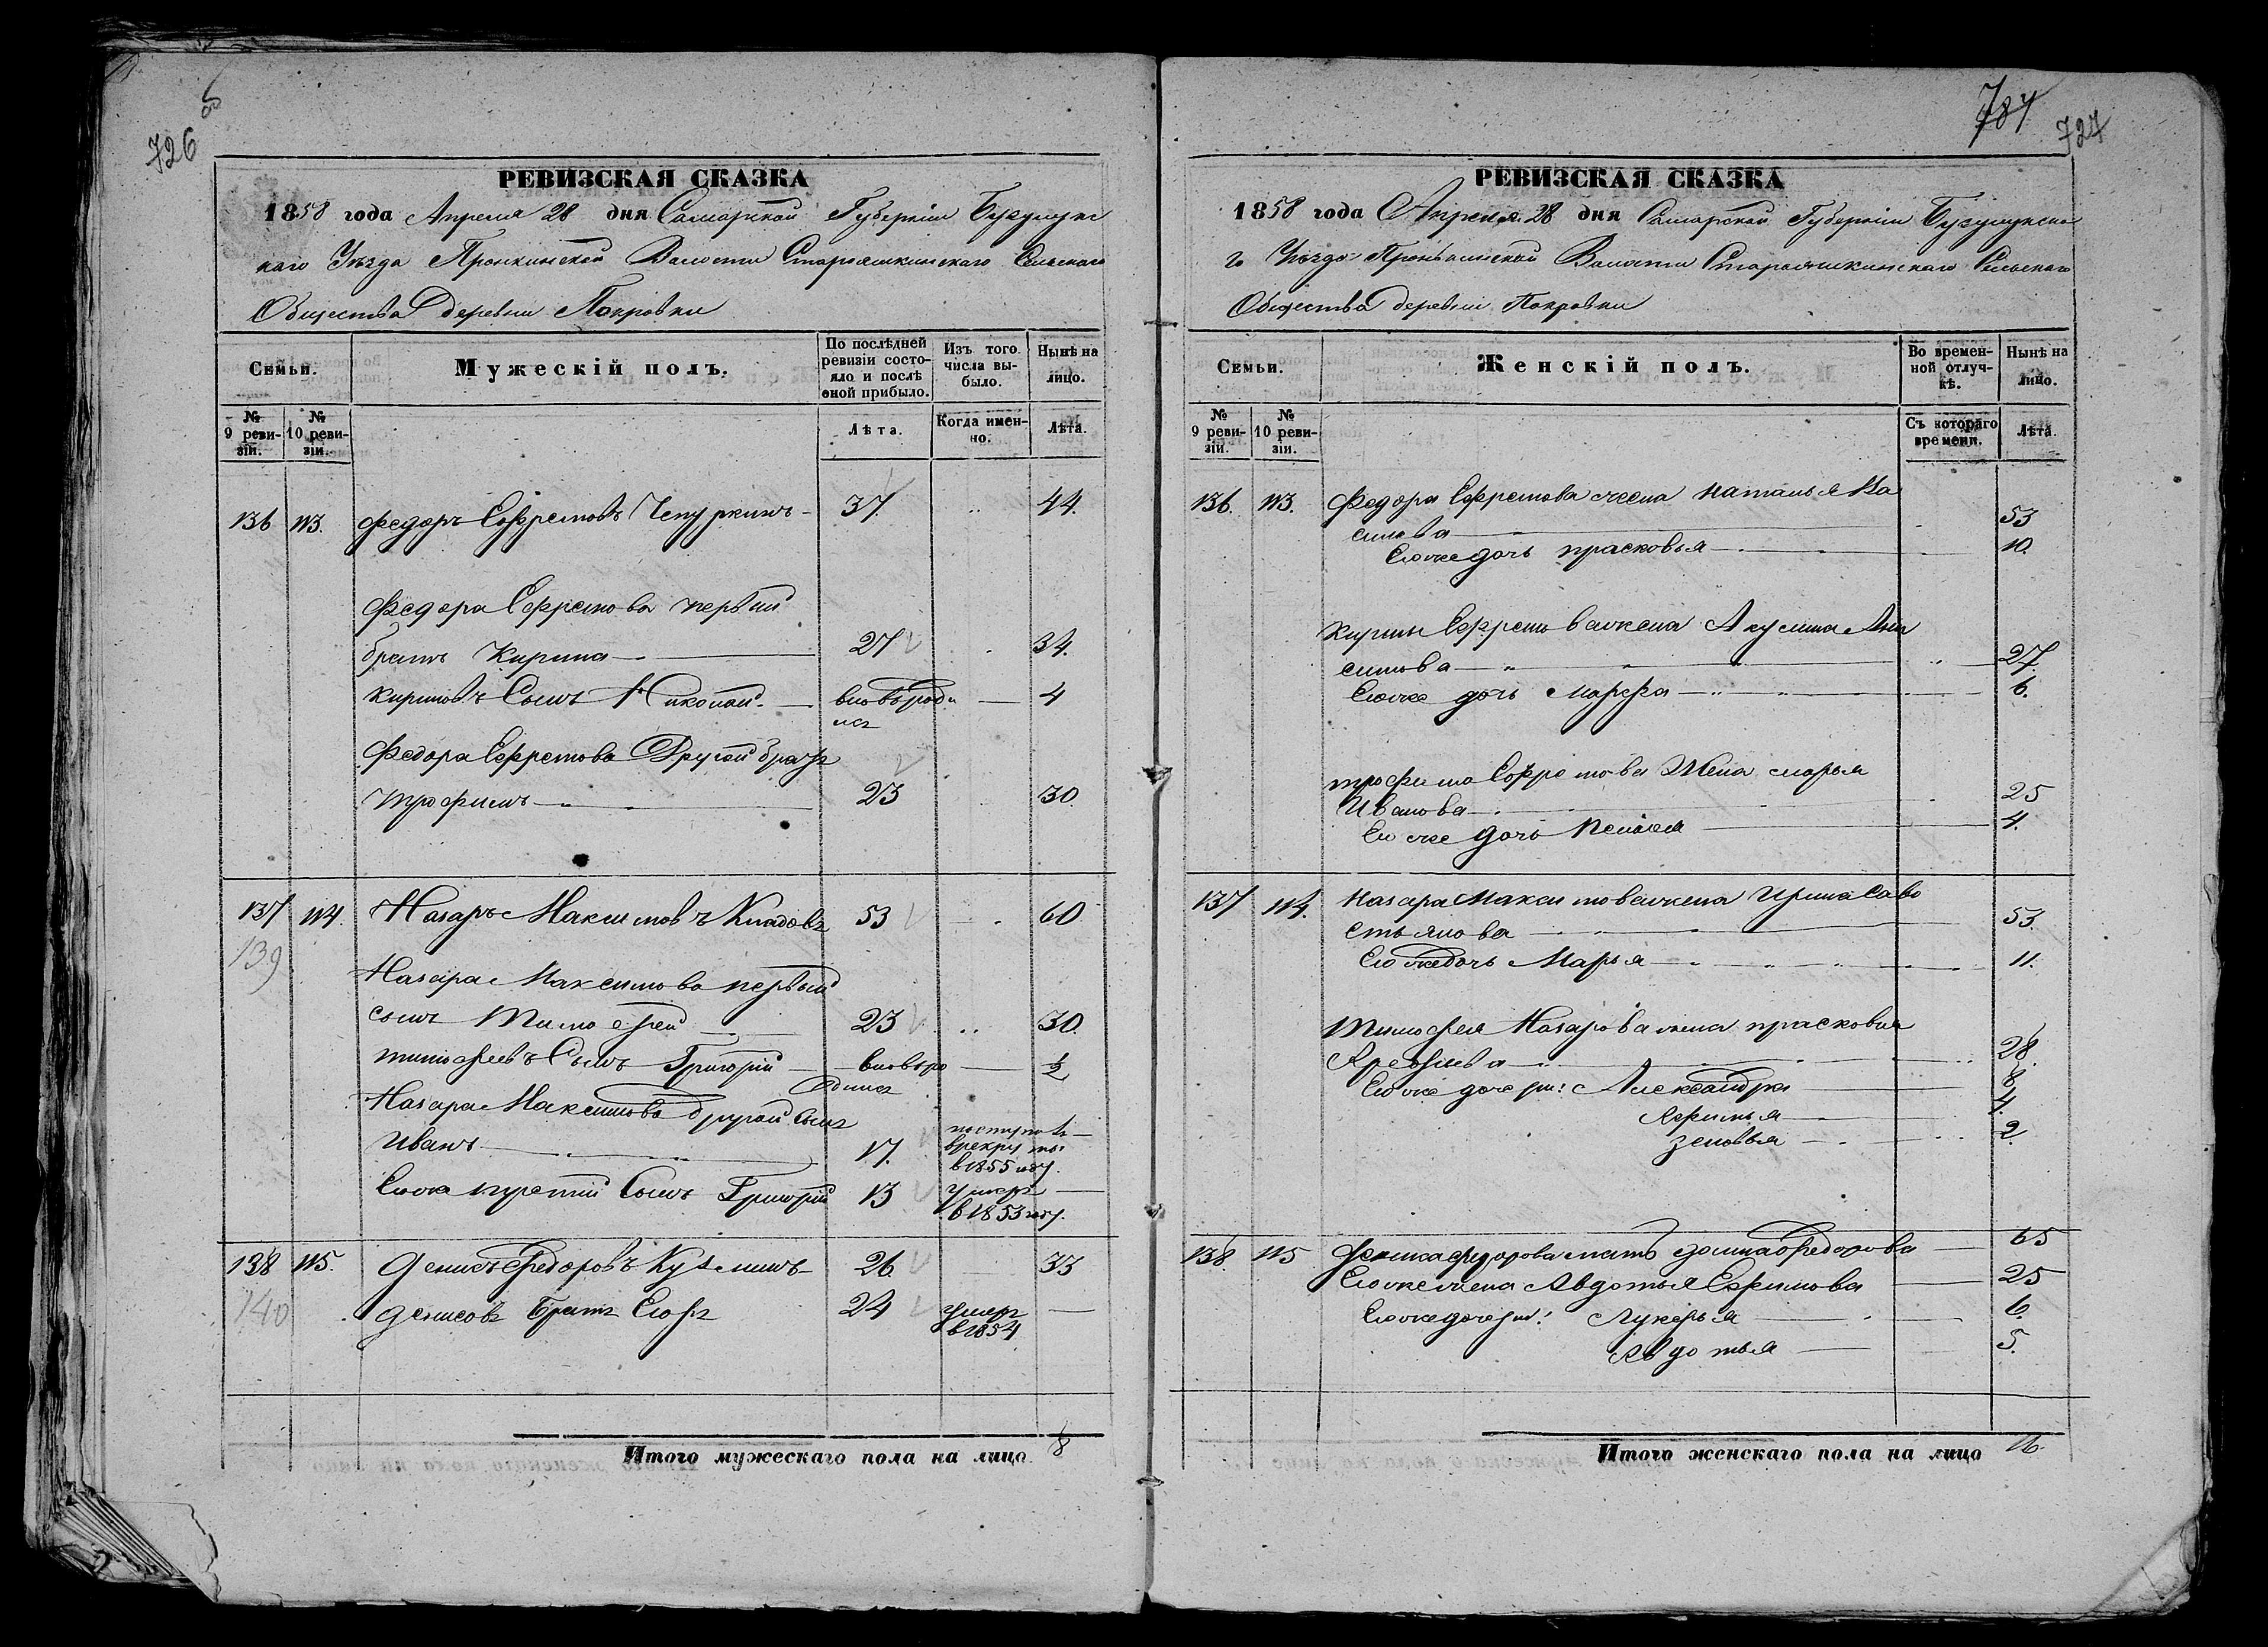 726
РЕВИЗСКАЯ СКАЗКА
1858 года Апреля 28 дня Самарской Губернiи Бузулукс
каго Уѣзда Пронкинской Волости Староашкинскаго Сельскаго
Общества деревни Покровки
Семьи.
Мужескiй полъ.
По послѣдней ревизiи состояло и послѣ оной прибыло.
Изъ того числа выбыло.
Нынѣ на лицо.
№ 9 ревизiи.
№ 10 ревизiи.
Лѣта.
Когда именно.
Лѣта.
136 113. Федоръ Ефремовъ Чепуркинъ 37 44.
Федора Ефремова первый
братъ Кирила 27 34.
Кириловъ Сынъ Николай вновь роди 4
лся
Федора Ефремова Другой братъ
трофимъ 23 30.
137 114. Назаръ Максимовъ Кладовъ 53 60
139
Назара Максимова первый
сынъ Тимофей 23 30.
тимофеевъ Сынъ Григорiй вновь ро ½
дился
Назара Максимова другой сынъ
Иванъ 17. поступилъ
в рекруты
в 1855 году.
Его же третiй Сынъ Григорiй 13 умеръ
в 1853 году.
138 115. Денисъ Федоровъ Кузминъ 26 33
140 Денисовъ Братъ Егоръ 24 умеръ
в 1854
Итого мужескаго пола на лицо 8
787 727
РЕВИЗСКАЯ СКАЗКА
1858 года Апреля 28 дня Самарской Губернiи Бузулукска
го Уѣзда Пронькинской Волости Староашкинскаго Сельскаго
Общества деревни Покровки
Семьи.
Женскiй полъ.
Во временной отлучкѣ.
Нынѣ на лицо.
№ 9 ревизiи.
№ 10 ревизiи.
Съ котораго времени.
Лѣта.
136. 113. Федора Ефремова жена Наталья Ва
силова 53
Его же дочь прасковья 10.
Кирилы Ефремова жена Акулина
27.
Его же дочь Марфа 6.
трофима Ефремова Жена марья
Иванова 25
Его же дочь 4.
137 114. Назара Максимова жена Ирина Саво
стьянова 53.
Его же дочь Марья 11.
Тимофея Назарова жена прасковья
28.
Его же дочери: Александра 8
Афимья 4.
зеновья 2
138. 115 Дениса федорова мать домна Федорова 65
Его же жена Авдотья Ефимова 25
Его же дочери: Лукерья 6.
Авдотья 5.
Итого женскаго пола на лицо 16.